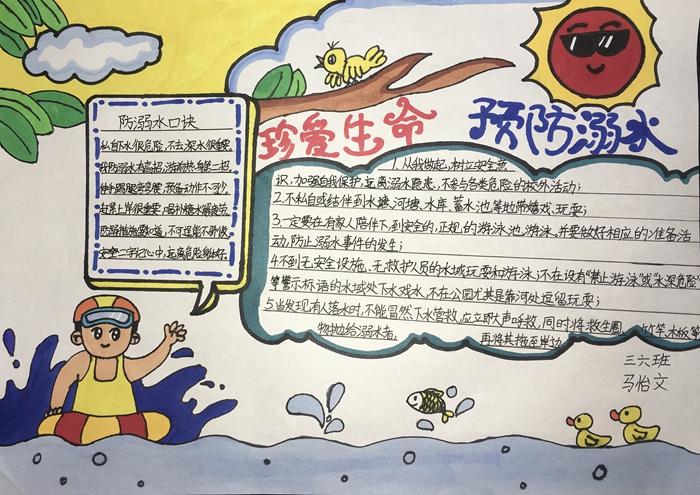 珍爱生命 预防溺水
防溺水口诀
私自下水很危险,不去深水很重要,
我防溺水有高招,游前热身第一招,
伸伸胳膊弯弯腰,预备动作不可少,
安全二字记心中,远离危险身体好。
1.从我做起,树立安全意
识,加强自我保护,远离溺水隐患,不参与各类危险的校外活动;
2.不私自或结伴到水塘、河塘、水库、蓄水池等地带嬉戏、玩耍;
3.一定要在有家人陪伴下,到安全的,正规的游泳池游泳。并要做好相应的准备活
动,防止溺水事件的发生;
4.不到无安全设施、无救护人员的水域玩耍和游泳;不在设有“禁止游泳”或“水深危险”
等警示标语的水域处下水戏水,不在公园尤其是靠河处逗留玩耍;
5.当发现有人落水时,不能冒然下水营救,应立即大声呼救,同时将救生圈 竹竿木板等
物抛给溺水者, 再将其拖至岸边
三六班
马怡文